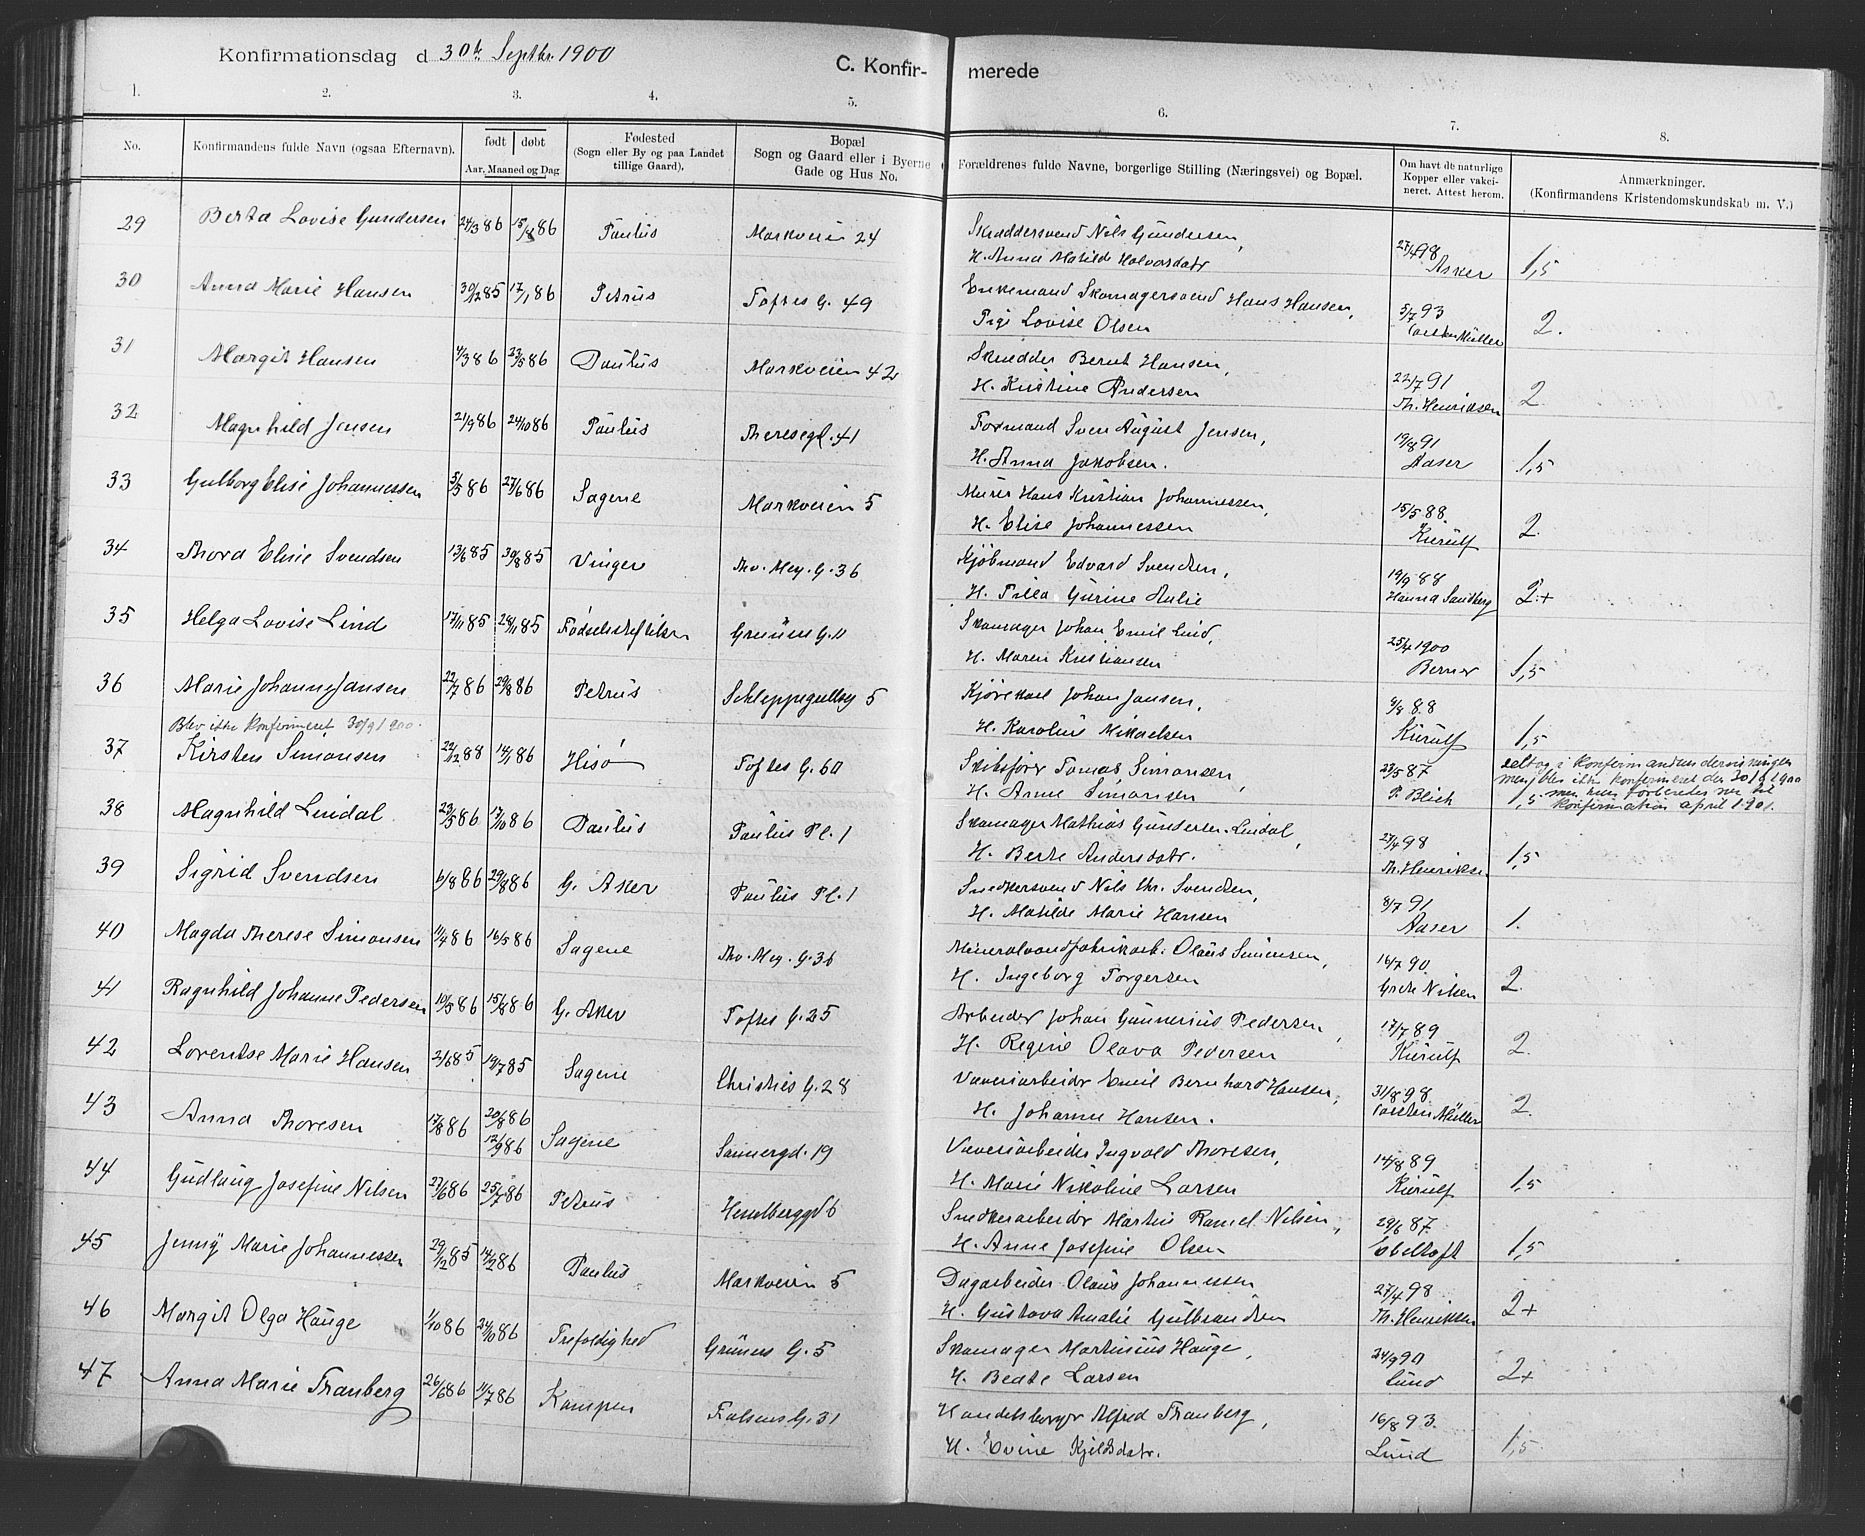 Konfirmationsdag d 30te Septbr. 1900
C. Konfir- merede
1. 2. 3. 4. 5. 6. 7. 8.
No.
Konfirmandens fulde Navn (ogsaa Efternavn).
født | døbt
Aar, Maaned og Dag
Fødested
(Sogn eller By og paa Landet
tillige Gaard).
Bopæl
Sogn og Gaard eller i Byerne
Gade og Hus No.
Forældrenes fulde Navne, borgerlige Stilling (Næringsvei) og Bopæl.
Om havt de naturlige
Kopper eller vakci-
neret. Attest herom.
Anmærkninger.
(Konfirmandens Kristendomskundskab m. V.)
29 Berta Lovise Gundersen 24/3 86 15/8 86 Paulus Markveien 24 Skræddersvend Nils Gundersen,
H. Anna Matilde Halvorsdatr 27/4 98 Asker 1,5
30 Anna Marie Hansen 30/12 85 17/1 86 Petrus Toftes G. 49 Enkemand Skomagersvend Hans Hansen,
Pige Lovise Olsen 5/7 93 Carsten Müller 2.
31 Margit Hansen 4/3 86 23/5 86 Paulus Markveien 42 Skrædder Bernt Hansen,
H. Kristine Andersen 22/7 91 Th. Henriksen 2
32 Magnhild Jensen 21/9 86 24/10 86 Paulus Theresegd. 41 Formand Sven August Jensen,
H. Anna Jakobsen. 19/8 91 Aaser 1,5
33 Gulborg Elise Johannessen 5/5 86 27/6 86 Sagene Markveien 5 Murer Hans Kristian Johannessen,
H. Elise Johannessen 15/5 88. Kierulf 2.
34 Thora Elise Svendsen 13/6 85 30/8 85 Vinger Thv. Mey. G. 36 Kjøbmand Edvard Svendsen,
H. Tilla Gurine Aulie 19/9 88 Hanna Sandberg 2+
35 Helga Lovise Lind 17/11 85 28/11 85 Fødselsstiftelsen Grüners G. 11 Skomager Johan Emil Lind,
H. Maren Kristiansen 25/4 1900 Berner 1,5
36 Marie Johanne Jansen 22/7 86 29/8 86 Petrus Schleppegrellsg 5 Kjørekarl Johan Jansen,
H. Karoline Mikaelsen 9/8 88 Kierulf 1,5
Blev ikke konfirmeret 30/9 1900.
37 Kirsten Simonsen 22/12 88 14/1 86 Hisø Toftes G. 60 Skibsfører Tomas Simonsen,
H. Anne Simonsen 23/5 87 P. Blich 1,5
deltog i konfirmandundervisningen
men blev ikke konfirmeret den 30/9 1900
men hun forberedes nu til
konfirmation april 1901.
38 Magnhild Lindal 23/5 86 17/10 86 Paulus Paulus Pl. 1 Skomager Mathias Gundersen Lindal,
H. Berte Andersdatr. 27/4 98 Th. Henriksen 1,5
39 Sigrid Svendsen 6/8 86 29/8 86 G. Aker Paulus Pl. 1 Snedkersvend Nils Chr. Svendsen,
H. Matilde Marie Hansen 8/7 91 Aaser 1.
40 Magda Therese Simonsen 11/4 86 16/5 86 Sagene Thv. Mey. G. 36 Mineralvandfabrikarb. Olaus Simonsen,
H. Ingeborg Torgersen 16/7 90. Grete Nilsen 2.
41 Ragnhild Johanne Pedersen 10/5 86 15/8 86 G. Aker Toftes G. 25 Arbeider Johan Gunnerius Pedersen,
H. Regine Olava Pedersen 17/7 89 Kierulf 2.
42 Lorentse Marie Hansen 2/6 85 19/7 85 Sagene Christies G. 28 Væveriarbeider Emil Bernhard Hansen,
H. Johanne Hansen. 31/8 98 Carsten Müller 2.
43 Anna Thoresen 17/8 86 20/8 86
12/9 86 Sagene Sannergd. 19 Væveriarbeider Ingvald Thoresen,
H. Marie Nikoline Larsen 14/8 89 Kierulf 1,5
44 Gudlaug Josefine Nilsen 27/6 86 25/7 86 Petrus Heselberggd 6 Snedkerarbeider Martin Ramel Nilsen,
H. Anne Josefine Olsen 29/6 87. Ebeltoft 1,5
45 Jenny Marie Johannessen 29/12 85 14/2 86 Paulus Markveien 5 Dagarbeider Olaus Johannessen
H. Gustava Amalie Gulbrandsen 27/4 98 Th. Henriksen 2+
46 Margit Olga Hauge 1/10 86 24/10 86 Trefoldighed Grüners G. 5 Skomager Martinius Hauge,
H. Beate Larsen 24/9 90 Lund 2+
47 Anna Marie Tranberg 26/6 86 11/7 86 Kampen Falsens G. 31 Handelsborger Alfred Tranberg,
H. Evine Kjeldsdatr. 16/8 93. Lund 1,5